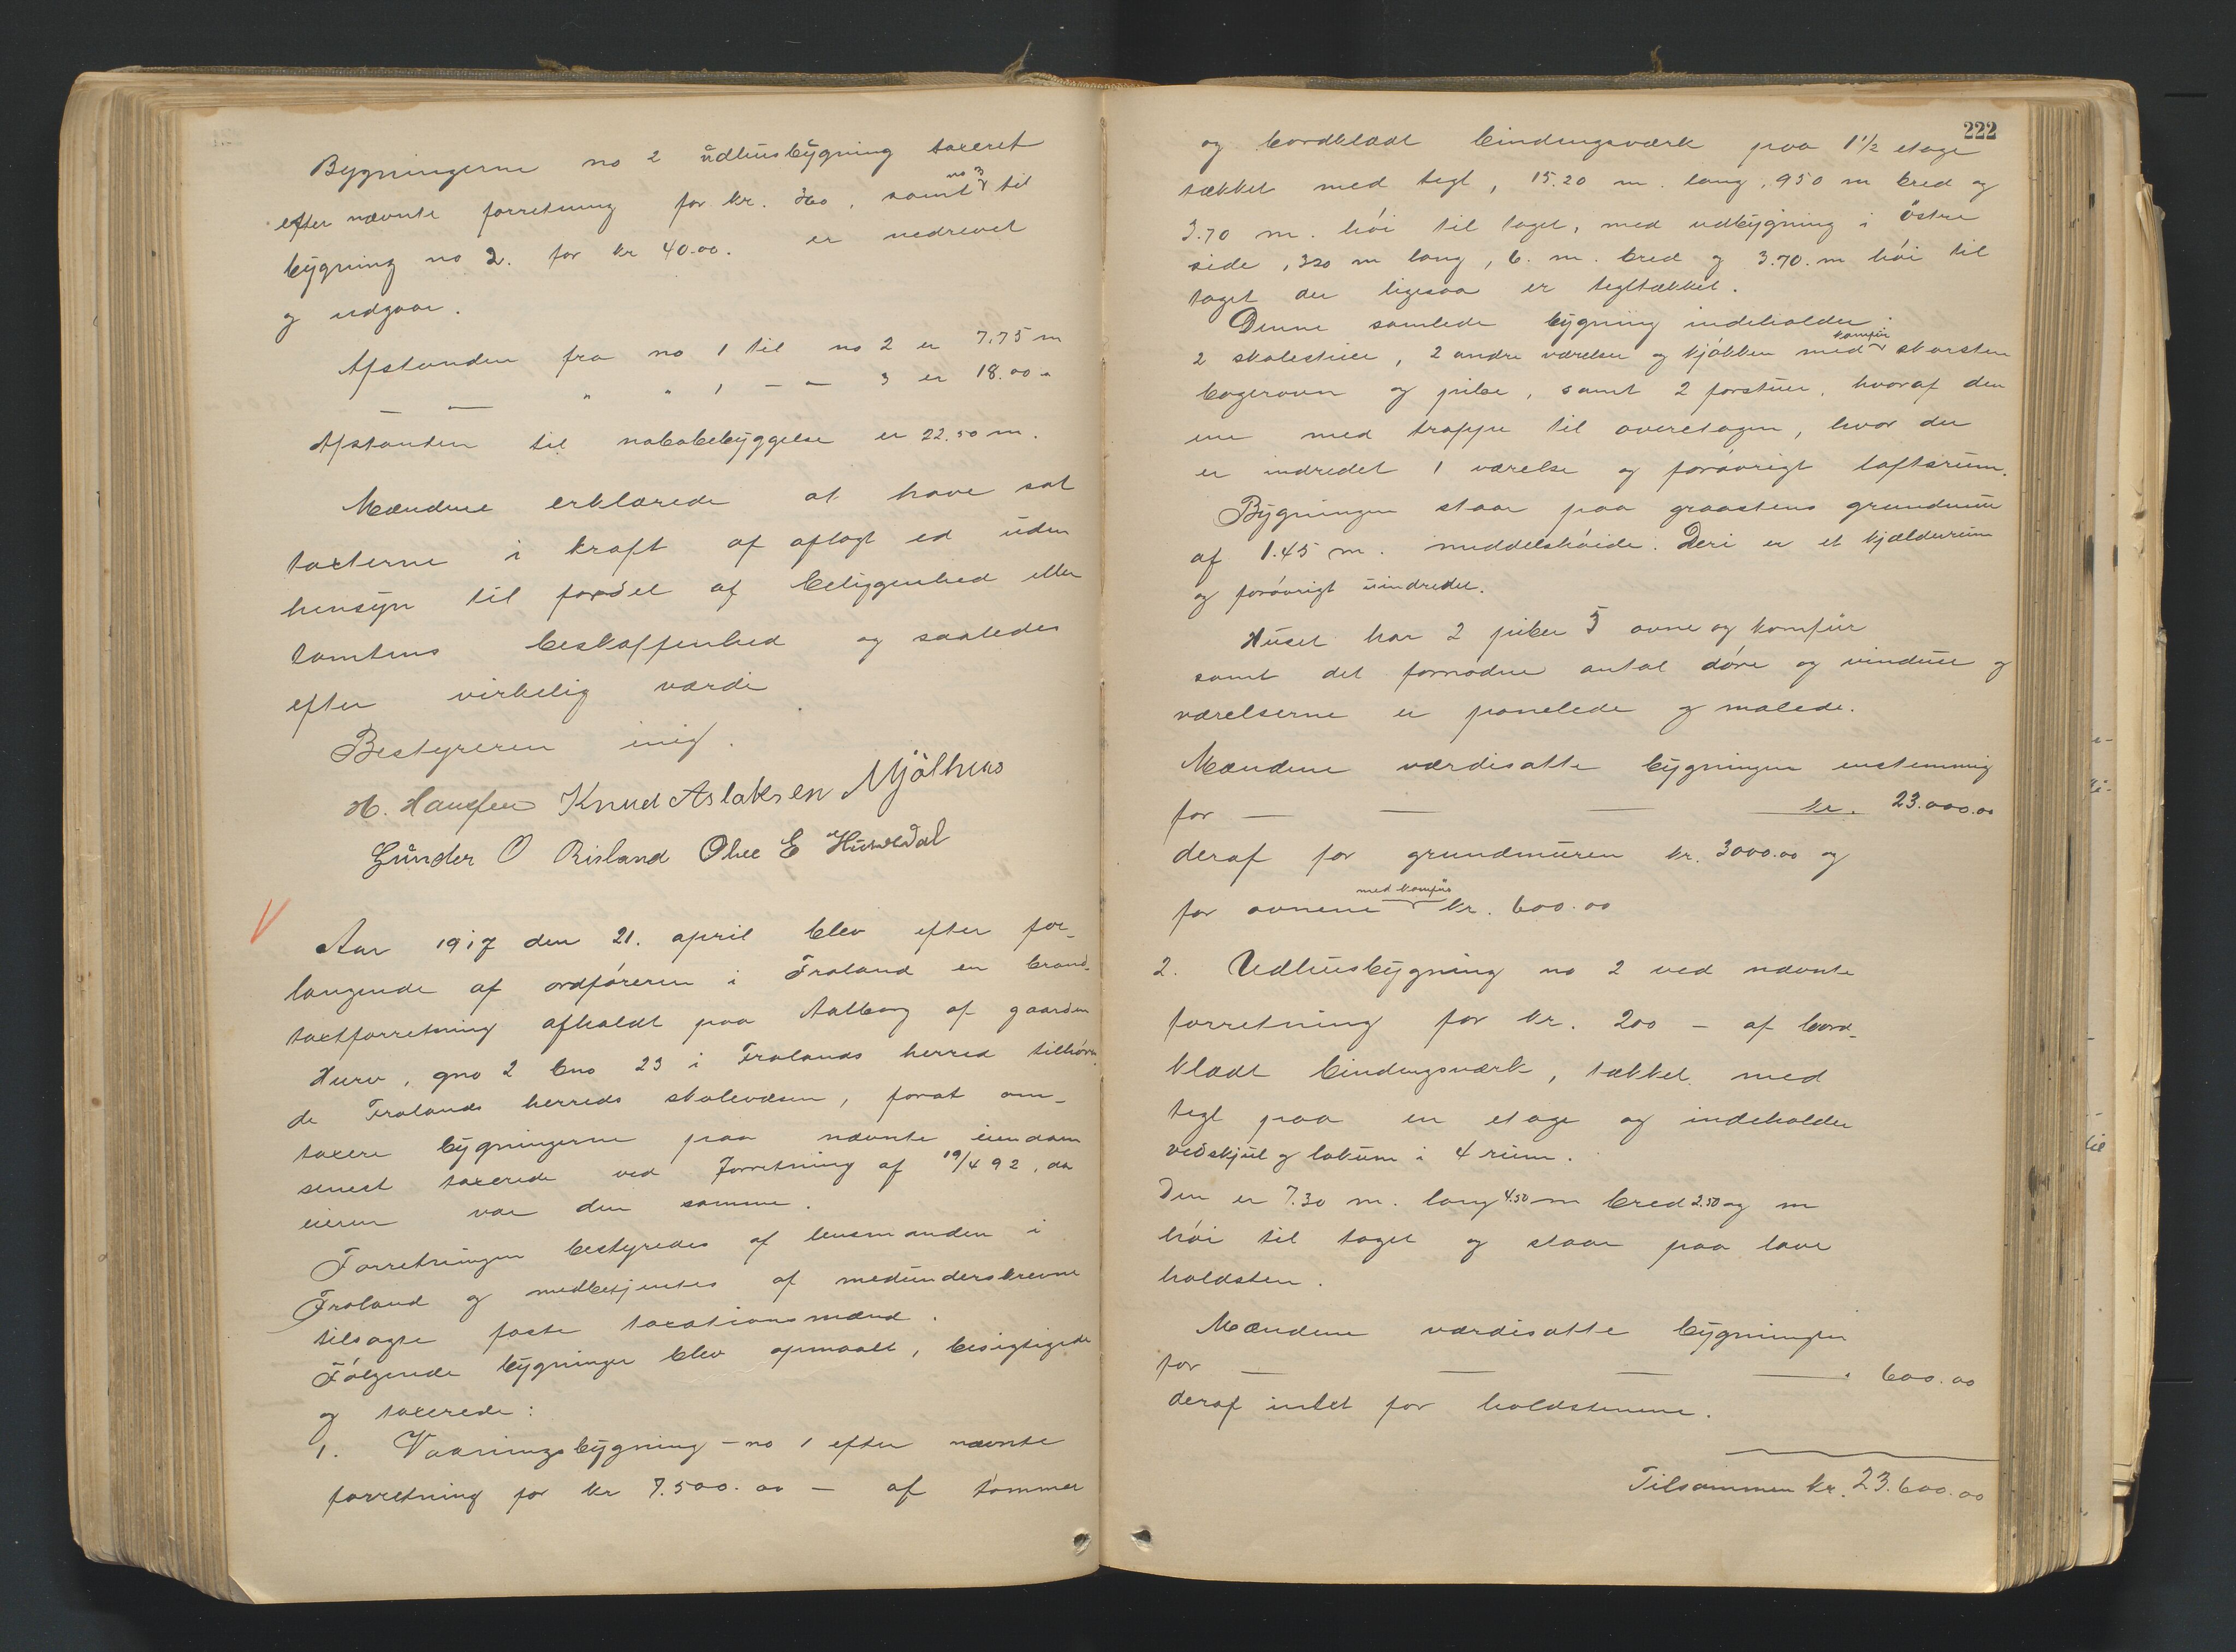 Bygningerne no 2 udhusbygning taxeret
efter nævnte forretning for kr. 360, samt no 3 til
bygning no 2. for kr 40.00. er nedrevet
og udgaar.
Afstanden fra no 1 til no 2 er 7.75 m
— — " " 1 — — 3 er 18.00 "
Afstanden til nabobebyggelse er 22.50 m.
Mændene erklærede at have sat
taxterne i kraft af aflagt ed uden
hensyn til fordel af beliggenhed eller
tomtens beskaffenhed og saaledes
efter virkelig værdi
Bestyreren enig.
H. Hansen Knud Aslaksen Mjølhus
Gunder O Risland Olve E
Aar 1917 den 21. april blev efter for-
langende af ordføreren i Froland en brand-
taxtforretning afholdt paa Aalborg af gaarden
Hurv, gno 2 bno 23 i Frolands herred tilhøren-
de Frolands herreds skolevæsen, forat om-
taxere bygningerne paa nævnte eiendom
senest taxerede ved Forretning af 19/4 92, da
eieren var den samme.
Forretningen bestyredes af lensmanden i
Froland og medbetjentes af medunderskrevne
tilsagte faste taxationsmænd.
Følgende bygninger blev opmaalt, besigtigede
og taxerede:
1. Vaaningsbygning - no 1 efter nævnte
forretning for kr 7.500.00 — af tømmer
222
og bordklædt bindingsværk paa 1 1/2 etage
tækket med tegl, 15.20 m. lang, 950 m bred og
3.70 m. høi til taget, med udbygning i østre
side, 320 m lang, 6. m. bred og 3.70. m høi til
taget der ligesaa er tegltækket.
Denne samlede bygning indeholder:
2 skolestuer, 2 andre værelser og kjøkken med komfur skorsten
bagerovn og pibe, samt 2 forstuer, hvoraf den
ene med trappe til overetagen, hvor der
er indredet 1 værelse og forøvrigt loftsrum.
Bygningen staar paa graastens grundmur
af 1.45 m. middelshøide. Deri er et kjælderrum
og forøvrigt uindredet.
Huset har 2 piber 5 ovne og komfur
samt det fornødne antal døre og vinduer og
værelserne er panelede og malede.
Mændene værdisatte bygningen enstemmig
for — — — kr. 23.000.00
deraf for grundmuren kr. 3000.00 og
for ovnene med komfur kr. 600.00
2. Udhusbygning no 2 ved nævnte
forretning for kr. 200 — af bord-
klædt bindingsværk, tækket med
tegl paa en etage og indeholder
vedskjul og lokum i 4 rum.
Den er 7.30 m. lang 4.50 m bred 2.50 og m
høi til taget og staar paa lave
holdsten.
Mændene værdisatte bygningen
for — — — — " 600.00
deraf intet for holdstenene.
Tilsammen kr. 23.600.00